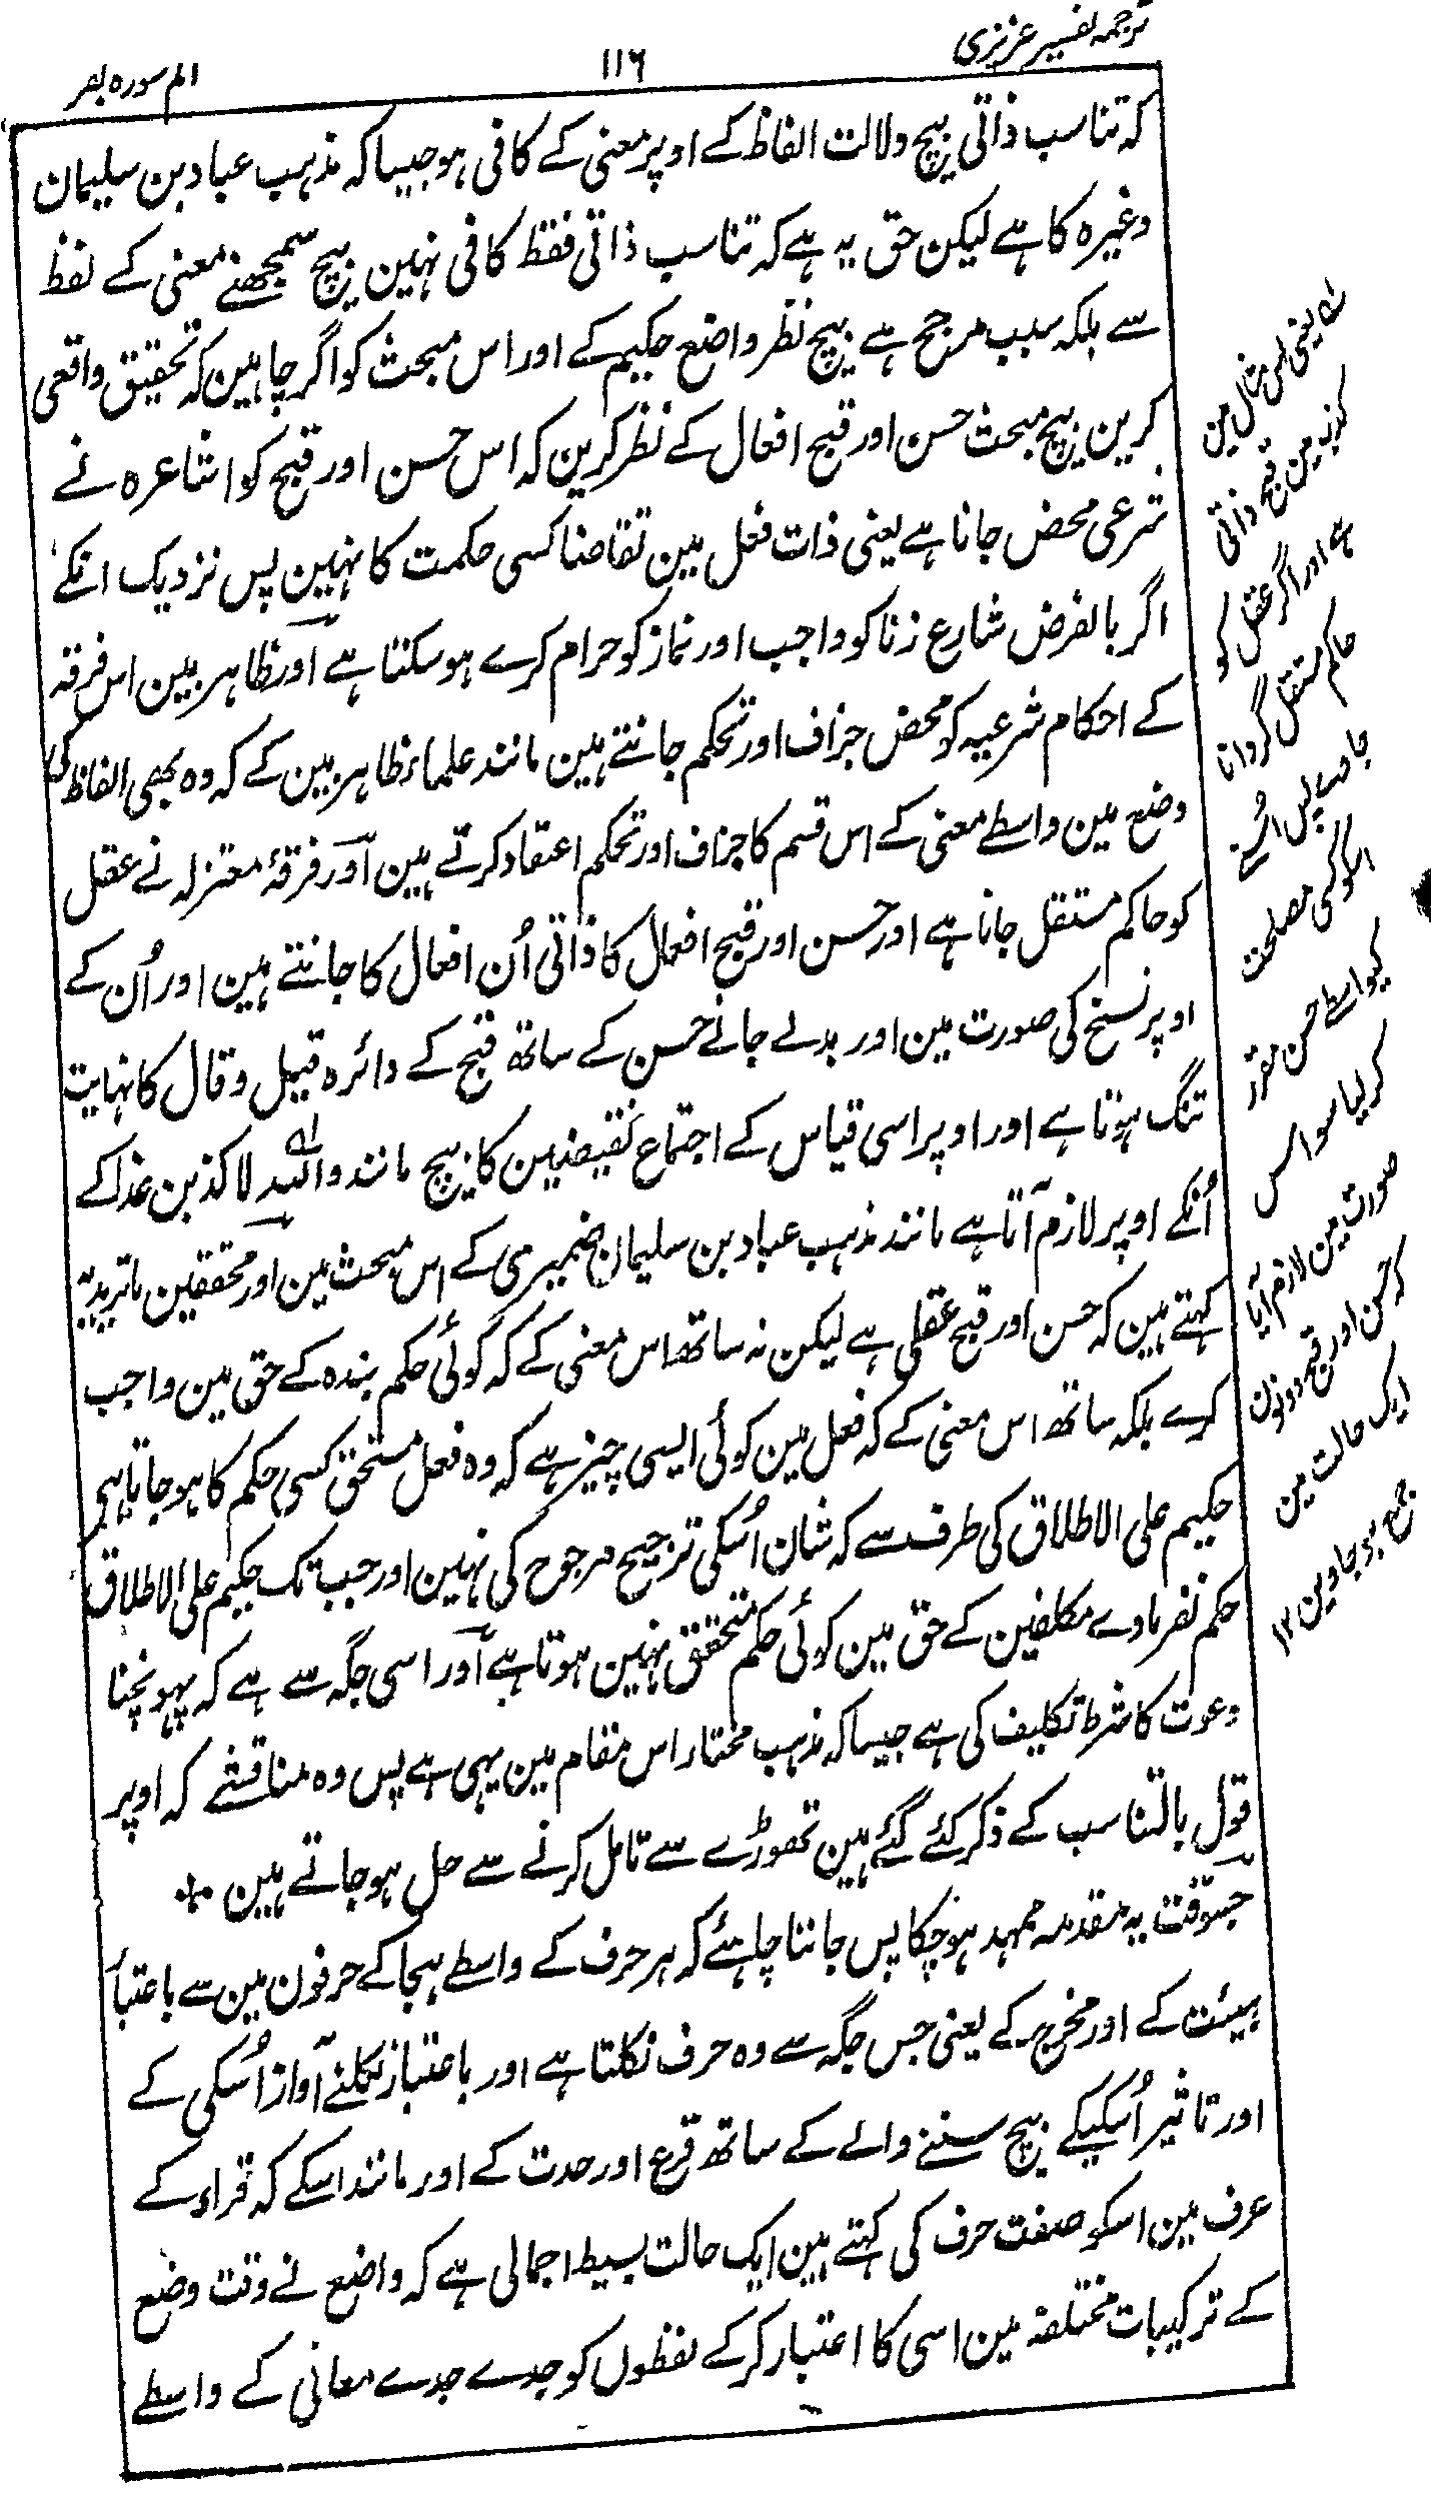 ترجمہ تفسیر عزیزی
١١٦
الم سورہ بقر
کہ تناسب ذاتی بیچ دلالت الفاظ کے اوپر معنی کے کافی ہو جیسا کہ مذہب عباد بن سلیمان
وغیرہ کا ہے لیکن حق یہ ہے کہ تناسب ذاتی فقط کافی نہین بیچ سمجھنے معنی کے لفظ
سے بلکہ سبب مرجح ہے بیچ نظر واضع حکیم کے اور اس مبحث کو اگر چاہین کہ تحقیق واقعی
کرین بیچ مبحث حسن اور قبح افعال کے نظر کرین کہ اس حسن اور قبح کو اشاعرہ نے
شرعی محض جانا ہے یعنی ذات فعل مین تقاضا کسی حکمت کا نہین پس نزدیک انکے
اگر بالفرض شارع زنا کو واجب اور نماز کو حرام کرے ہو سکتا ہے اور ظاہر بین اس فرقہ
کے احکام شرعیہ کو محض جزاف اور تحکم جانتے ہین مانند علماء ظاہر بین کے کہ وہ بھی الفاظ کی
وضع مین واسطے معنی کے اس قسم کا جزاف اور تحکم اعتقاد کرتے ہین اور فرقۂ معتزلہ نے عقل
کو حاکم مستقل جانا ہے اور حسن اور قبح افعال کا ذاتی اُن افعال کا جانتے ہین اور اُن کے
اوپر نسخ کی صورت مین اور بدلے جانے حسن کے ساتھ قبح کے دائرہ قیل و قال کا نہایت
تنگ ہوتا ہے اور اوپر اسی قیاس کے اجتماع نقیضین کا بیچ مانند واللہ لاکذبن غدا کے
اُنکے اوپر لازم آتا ہے مانند مذہب عباد بن سلیمان ضمیری کے اس مبحث مین اور محققین ماتریدیہ
کہتے ہین کہ حسن اور قبح عقلی ہے لیکن نہ ساتھ اس معنی کے کہ کوئی حکم بندہ کے حق مین واجب
کرے بلکہ ساتھ اس معنی کے کہ فعل مین کوئی ایسی چیز ہے کہ وہ فعل مستحق کسی حکم کا ہو جاتا ہی
حکیم علی الاطلاق کی طرف سے کہ شان اُسکی ترجیح مرجوح کی نہین اور جب تک حکیم علی الاطلاق
حکم نفرماوے مکلفین کے حق مین کوئی حکم متحقق نہین ہوتا ہے اور اسی جگہ سے ہے کہ پہونچنا
دعوت کا شرط تکلیف کی ہے جیسا کہ مذہب مختار اس مقام مین یہی ہے پس وہ مناقشے کہ اوپر
قول بالتناسب کے ذکر کئے گئے ہین تھوڑے سے تامل کرنے سے حل ہو جاتے ہین
جسوقت یہ مقدمہ ممہد ہو چکا پس جاننا چاہئے کہ ہر حرف کے واسطے ہجا کے حرفون مین سے باعتبار
ہیئت کے اور مخرج کے یعنی جس جگہ سے وہ حرف نکلتا ہے اور باعتبار نکلنے آواز اُسکی کے
اور تاثیر اُسکیکے بیچ سننے والے کے ساتھ قرع اور حدت کے اور مانند اسکے کہ قراء کے
عرف مین اسکو صفت حرف کی کہتے ہین ایک حالت بسیط اجمالی ہے کہ واضع نے وقت وضع
کے ترکیبات مختلفہ مین اسی کا اعتبار کر کے لفظوں کو جدے جدے معانی کے واسطے
لہ یعنی اس مثال مین
کذب مین قبح ذاتی
ہے اور اگر عقل کو
حاکم مستقل گردانا
جاوے پس
اسکو کسی مصلحت
کیواسطے حسن مقرر
کر لیا سو اس
صورت مین لازم آیا
کہ حسن اور قبح دونون
ایک حالت مین
جمع ہو جاوین ١٢